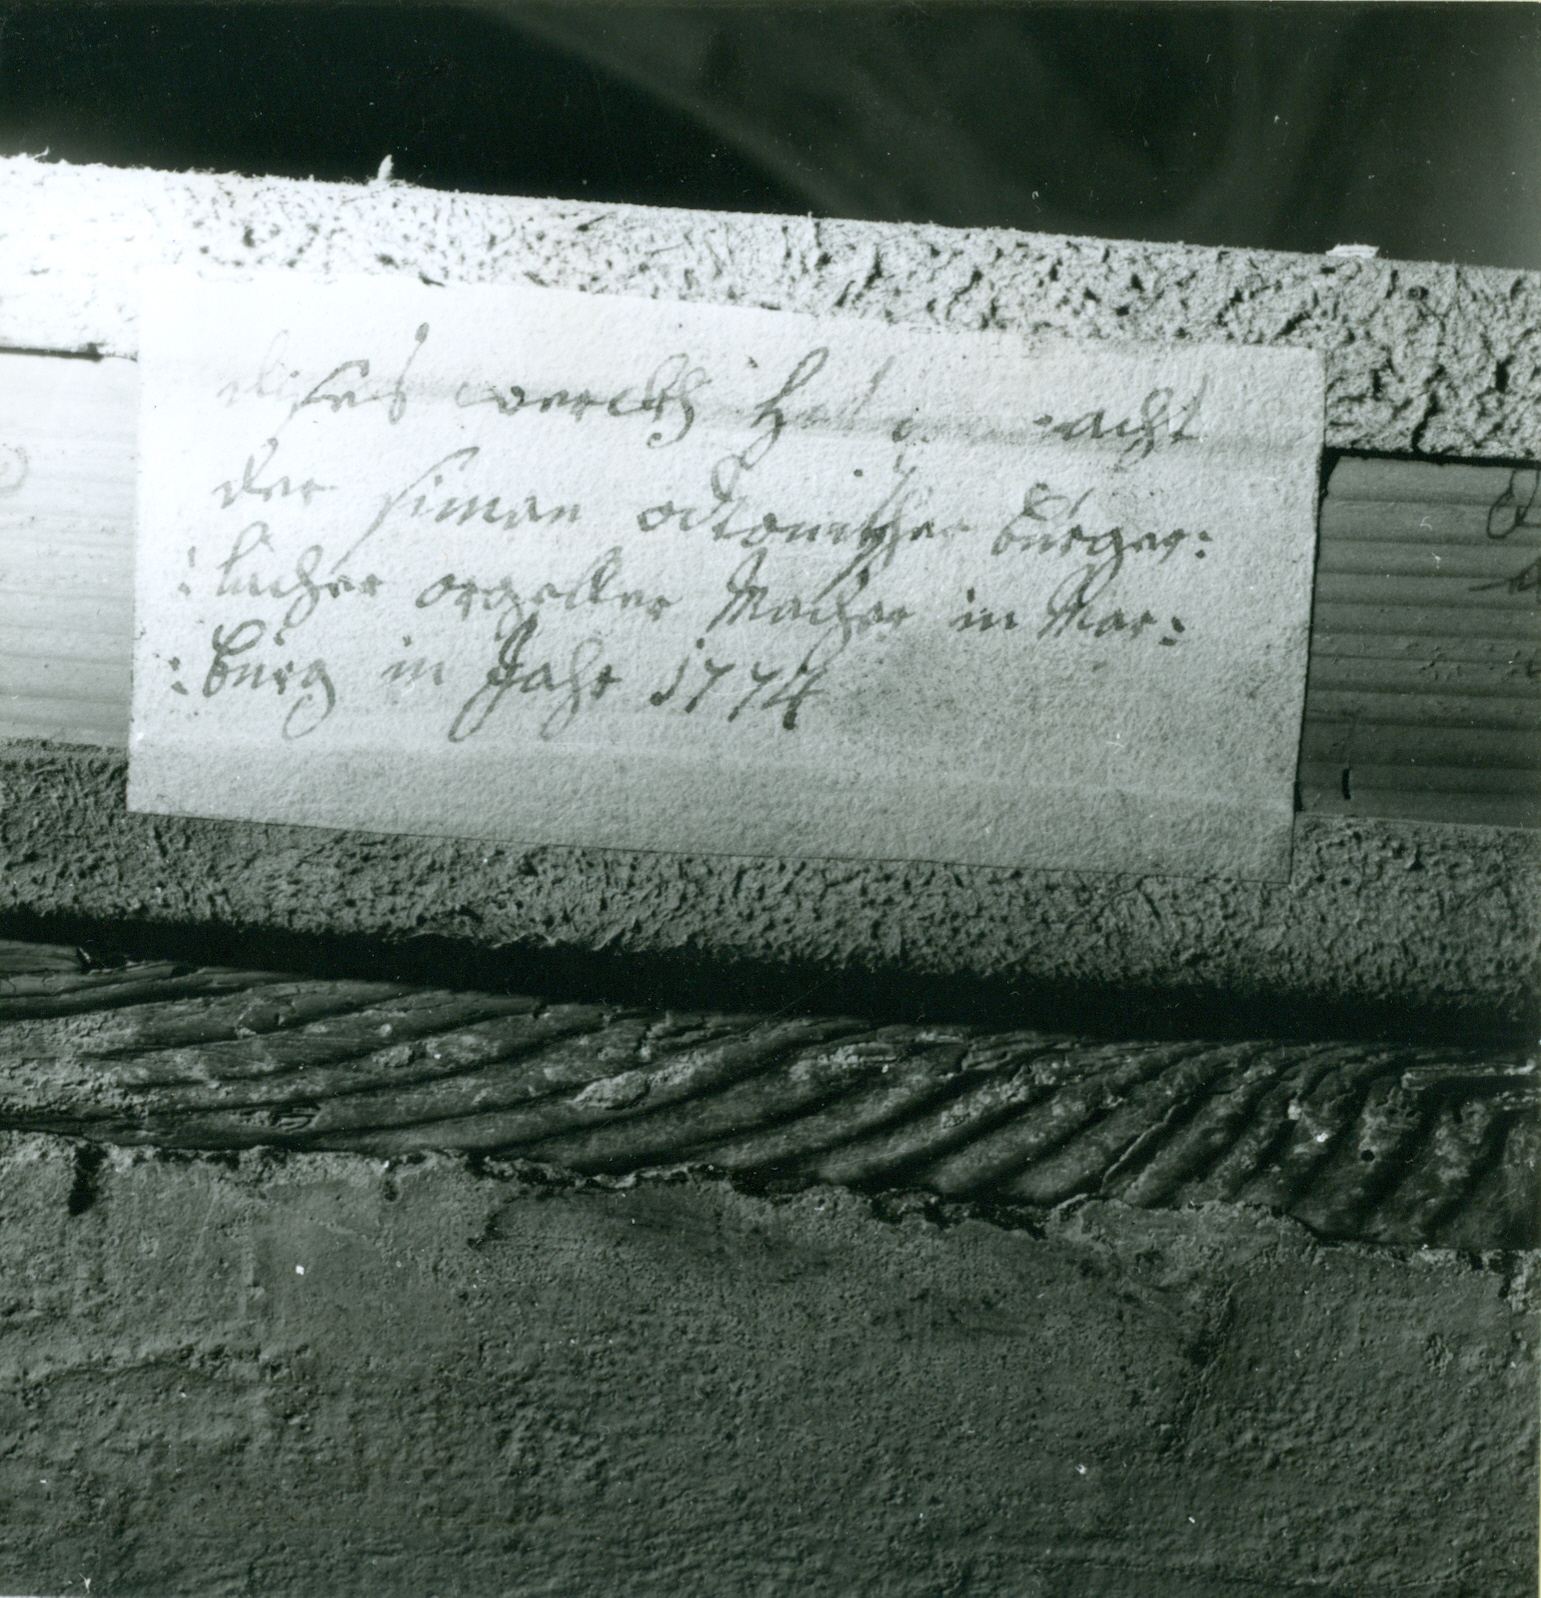 dises werckh hat gemacht
der simon ottonitscher burger:
:licher orgeller Macher in Mar:
:burg in Jahr 1774